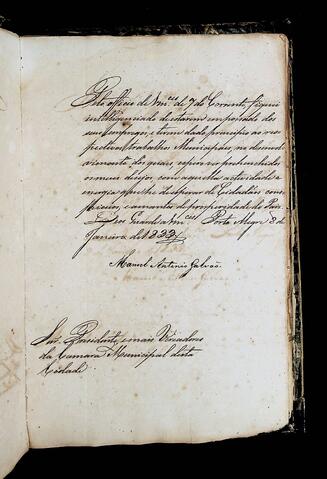 Pelo officio de Vm.ces de 7 do Corrente, fiquei
intelligenciado de estarem empossados dos
seus empregos, e terem dado principio aos res
pectivos trabalhos Municipaes, no desenvol
vimento dos quaes espero ver prehenchidos
os meus dezejos com aquella actividade e
energia que he de esperar de Cidadãos, cons
picuos, e amantes da prosperidade do Paiz.
Deos Guarde a Vm.ces Porto Alegre 8 de
Janeiro de 1833
Manoel Antonio Galvão.
Snr. Presidente, e mais Vereadores
da Camara Municipal desta
Cidade